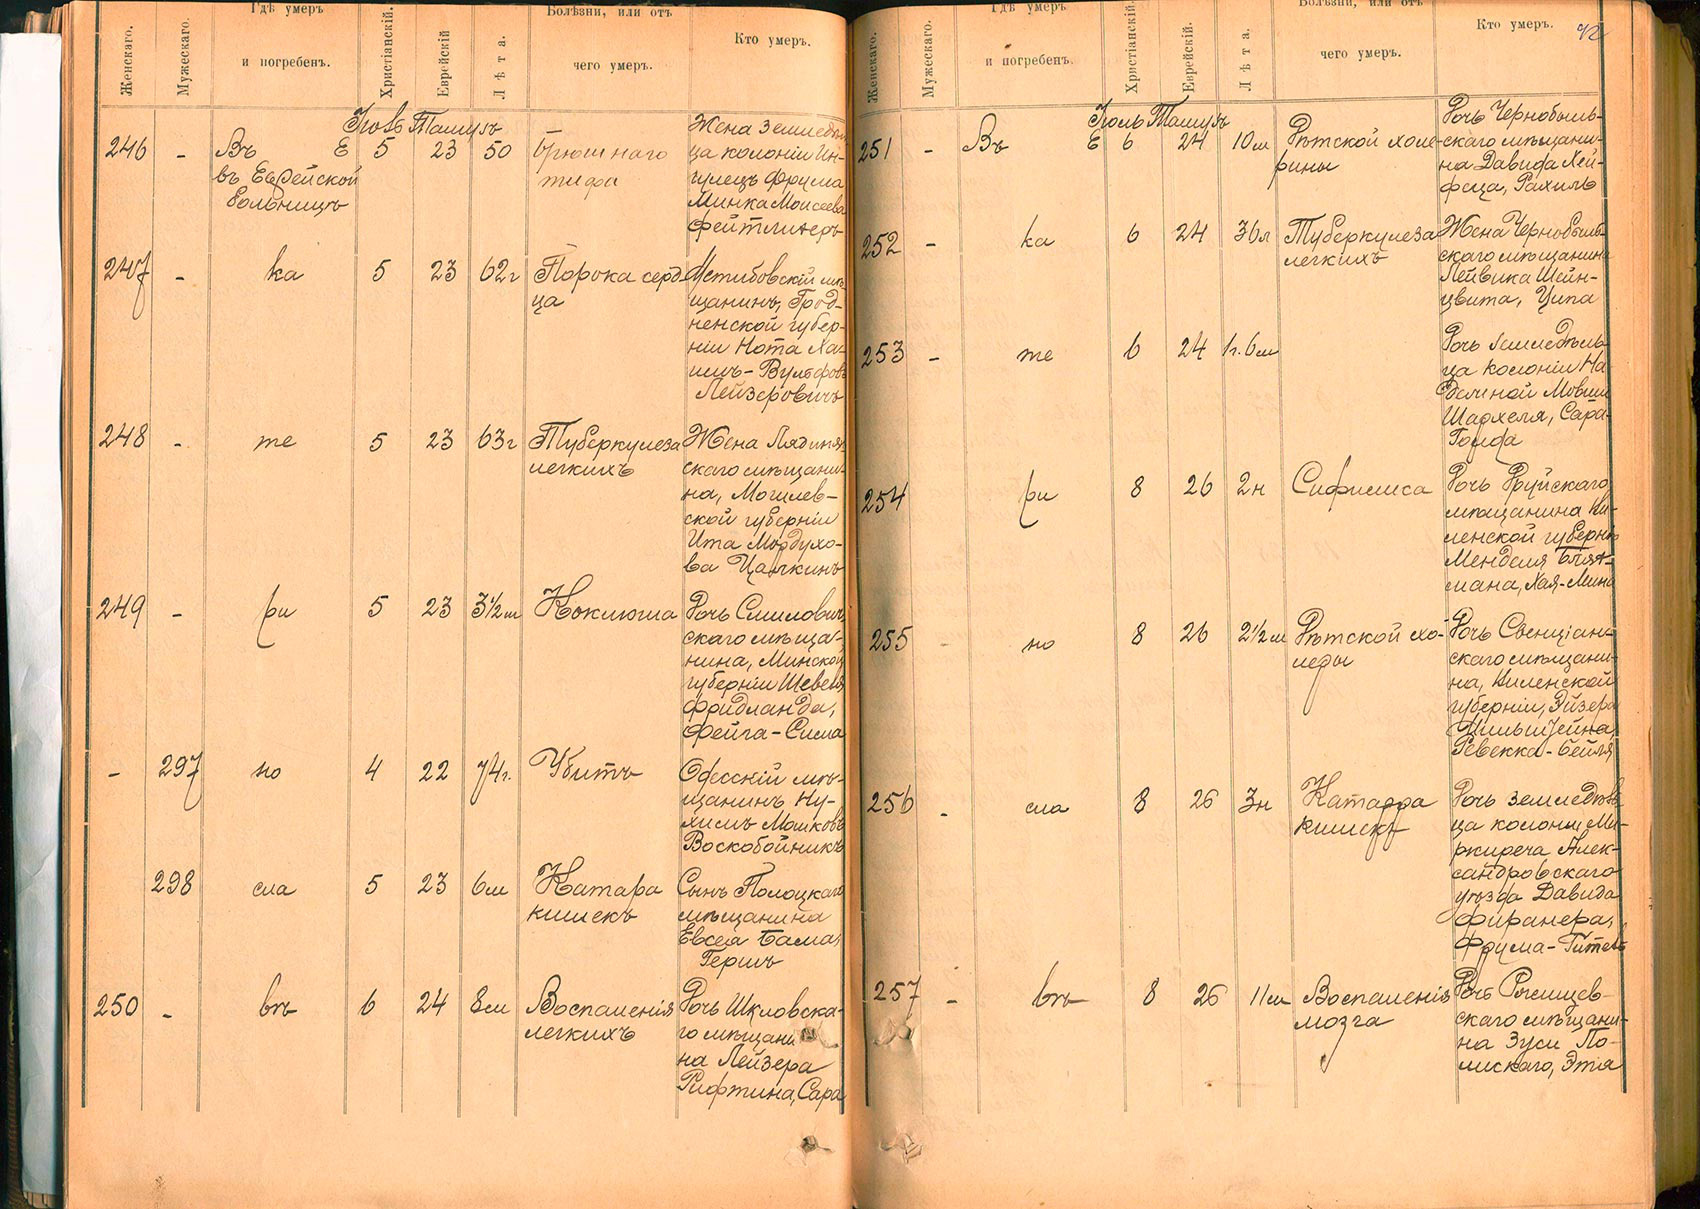 Женскаго.
Мужескаго.
Гдѣ умеръ
и погребенъ.
Христіанскій.
Еврейскій
Лѣта.
Болѣзни, или отъ
чего умеръ.
Кто умеръ.
Іюль Тамузъ
246 - Въ Е 5 23 50 Брюшнаго
въ Еврейской тифа
больницѣ
Жена земледѣль-
ца колоніи Ин-
гулецъ Фрума
Минка Моисеева
Фейтлинеръ
247 - ка 5 23 62г Порока серд-
ца
Мстибовскій мѣ-
щанинъ, Грод-
ненской губер-
ніи Нота Ха-
имъ-Вульфовъ
Лейзеровичъ
248 - те 5 23 63г Туберкулеза
легкихъ
Жена Лядинян-
скаго мѣщани-
на, Могилев-
ской губерніи
Ита Мордухо-
ва Цалкинъ
249 - ри 5 23 3½м Коклюша
Дочь Смилович-
скаго мѣща-
нина, Минской
губерніи Шевеля
Фридланда,
Фейга-Сима
- 297 но 4 22 74г. Убитъ
Одесскій мѣ-
щанинъ Ну-
химъ Мошковъ
Воскобойникъ
298 сла 5 23 6м Катара
кишекъ
Сынъ Полоцкаго
мѣщанина
Евсея Бама,
Гершъ
250 - въ 6 24 8м Воспаленія
легкихъ
Дочь Шкловска-
го мѣщани
на Лейзера
Рифтина, Сара
Женскаго.
Мужескаго.
Гдѣ умеръ
и погребенъ.
Христіанскій.
Еврейскій.
Лѣта.
Болѣзни, или отъ
чего умеръ.
Кто умеръ.
92
Іюль Тамузъ
251 - Въ Е 6 24 10м Дѣтской холе-
рины
Дочь Чернобыль-
скаго мѣщани-
на Давида Хей-
феца, Рахиль
252 - ка 6 24 36л Туберкулеза
легкихъ
Жена Чернобыль-
скаго мѣщанина
Лейвика Шейн-
цвита, Ципа
253 - те 6 24 1г.6м
Дочь земледѣль-
ца колоніи На-
дежной Мовши
Шадхеля, Сара-
Гольда
254 ри 8 26 2н Сифилиса
Дочь Друйскаго
мѣщанина Ви-
ленской губерніи
Менделя Блят-
мана, Хая-Мина
255 но 8 26 2½м Дѣтской хо-
леры
Дочь Свенціан-
скаго мѣщани-
на, Виленской
губерніи, Эйзера
Цильштейна,
Ревекка-Бейля
256 - сла 8 26 3н Катарра
кишекъ
Дочь земледѣль-
ца колоніи Ме-
жиреча Алек-
сандровскаго
уѣзда Давида
Фиранера,
Фрума-Гитель
257 - въ 8 26 11м Воспаленія
мозга
Дочь Рогищев-
скаго мѣщани-
на Зуси По-
лискаго, Этя